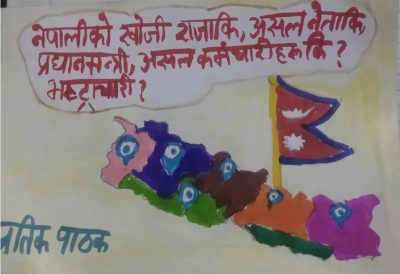 नेपालीको खोजी राजाकि, असल नेताकि,
प्रधानमन्त्री, असल कर्मचारीहरू कि ?
भष्ट्राचारी ?
पाठक